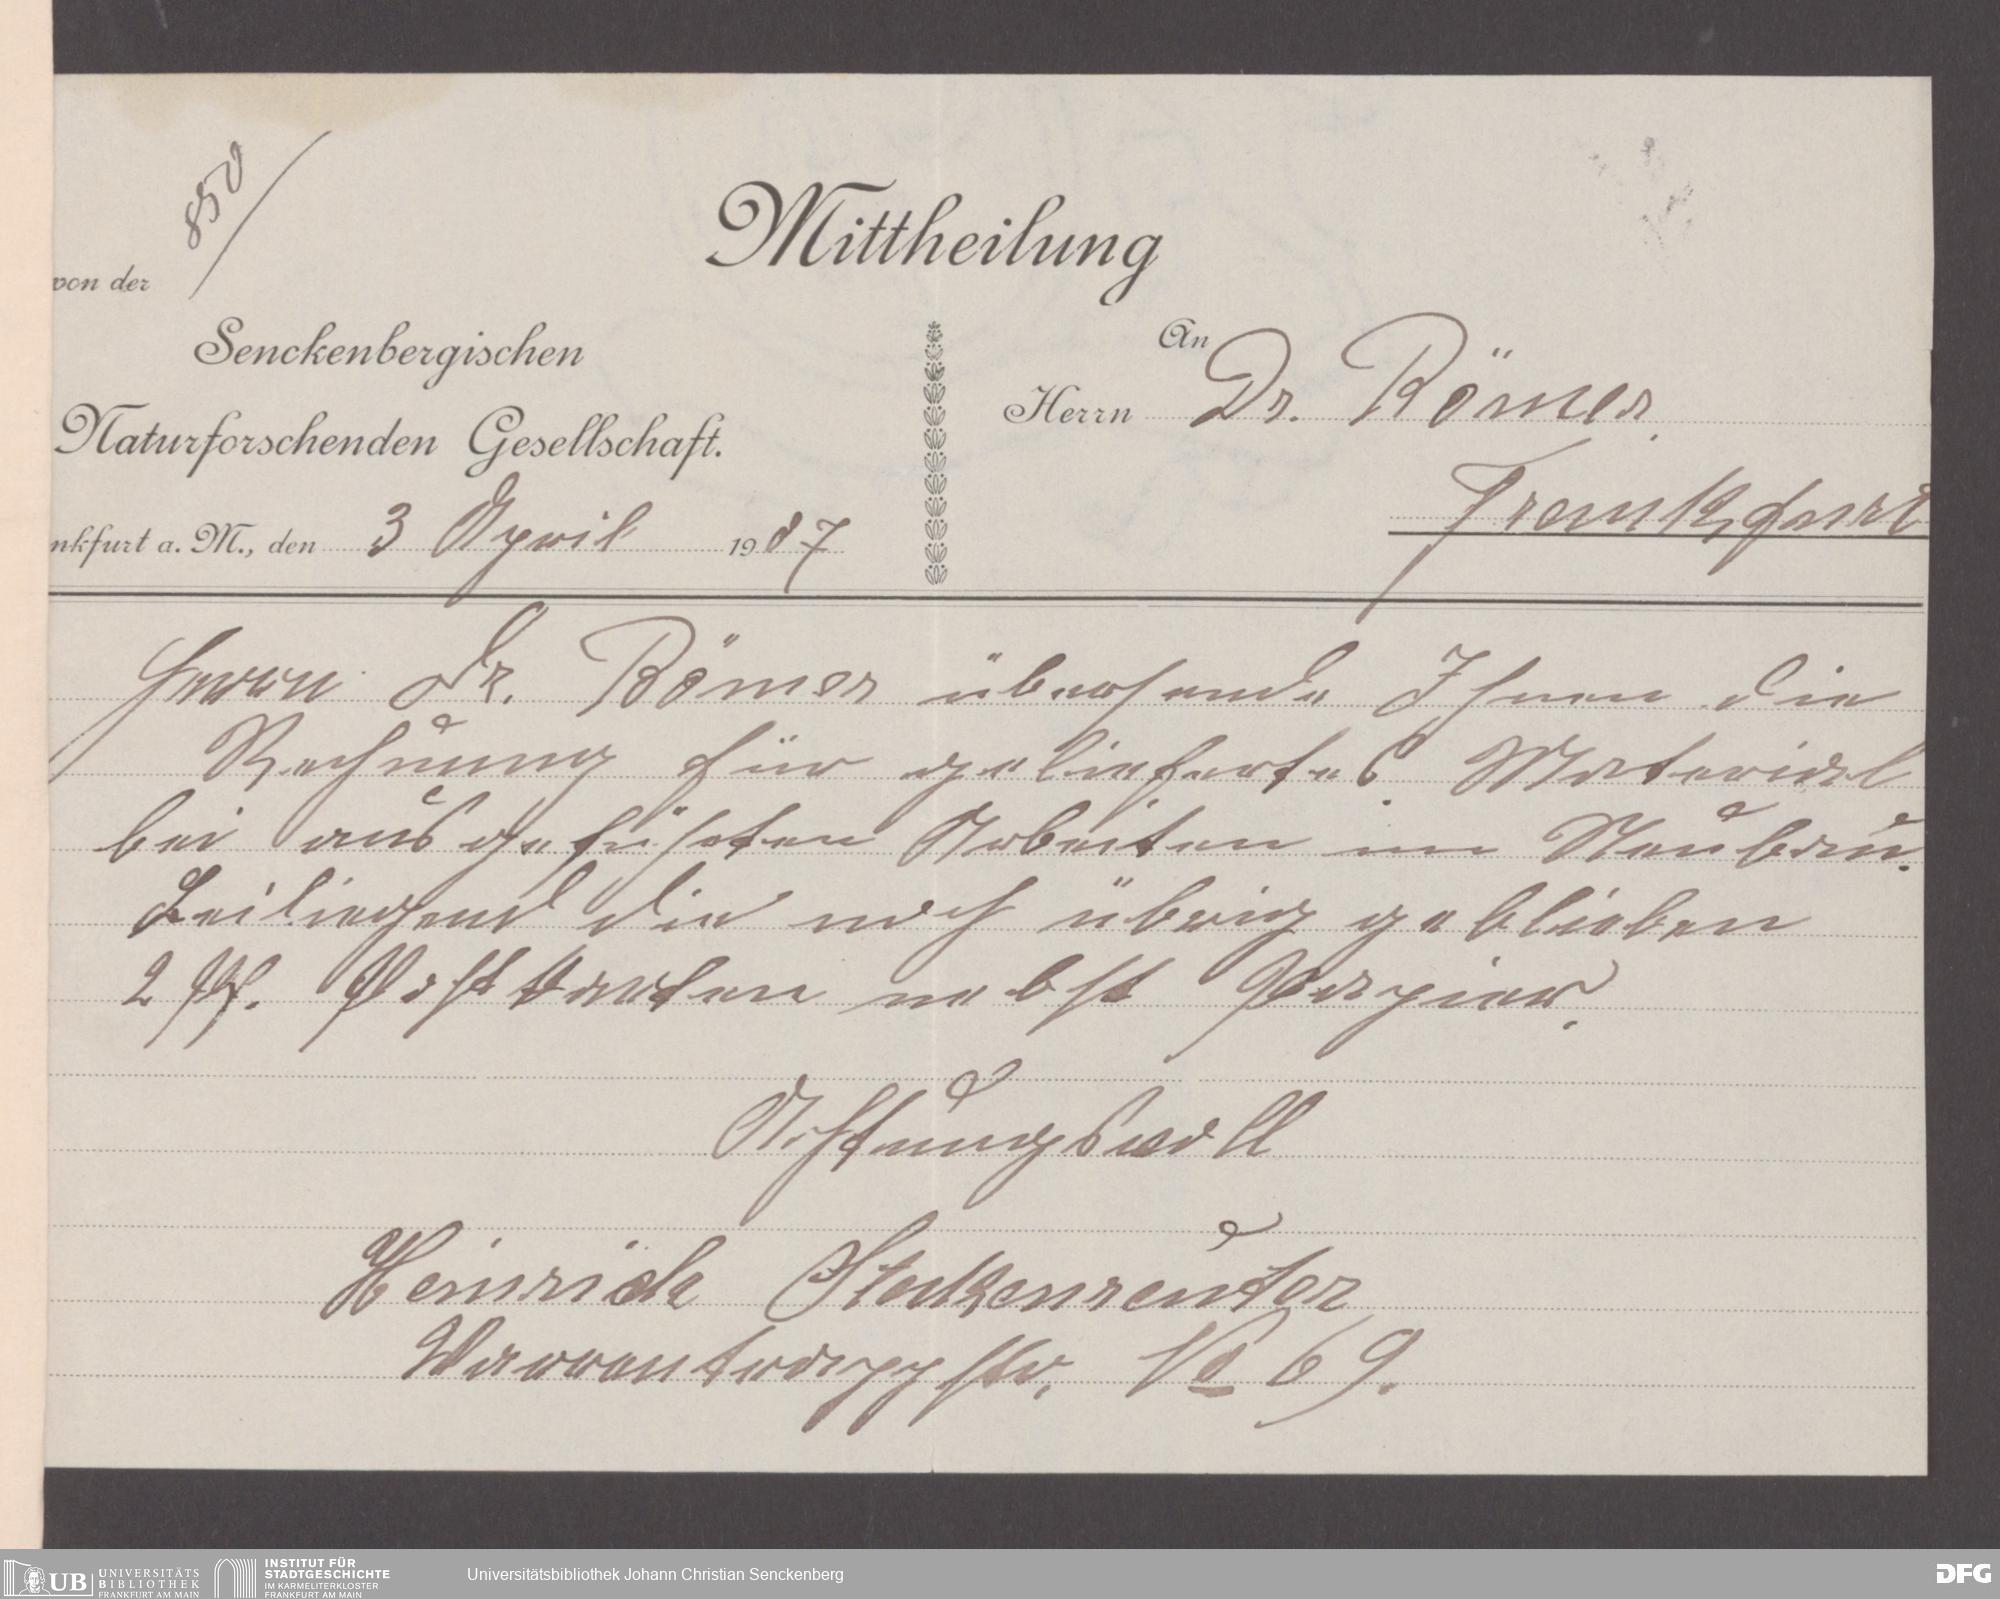 850
Mittheilung
von der
Senckenbergischen
Naturforschenden Gesellschaft.
nkfurt a. M., den 3 April 1907
An
Herrn Dr. Römer.
Frankfurt
Herrn Dr. Römer übersende Ihnen die
Rechnung für geliefertes Material
bei ausgeführten Arbeiten im Neubau.
Beiliegend die noch übrig geblieben
2 Pf. Postkarten nebst Papier.
Achtungsvoll
Heinrich Stukenreuter
Varrentrappstr. No 69.
UB UNIVERSITÄTS
BIBLIOTHEK
FRANKFURT AM MAIN
INSTITUT FÜR
STADTGESCHICHTE
IM KARMELITERKLOSTER
FRANKFURT AM MAIN
Universitätsbibliothek Johann Christian Senckenberg
DFG